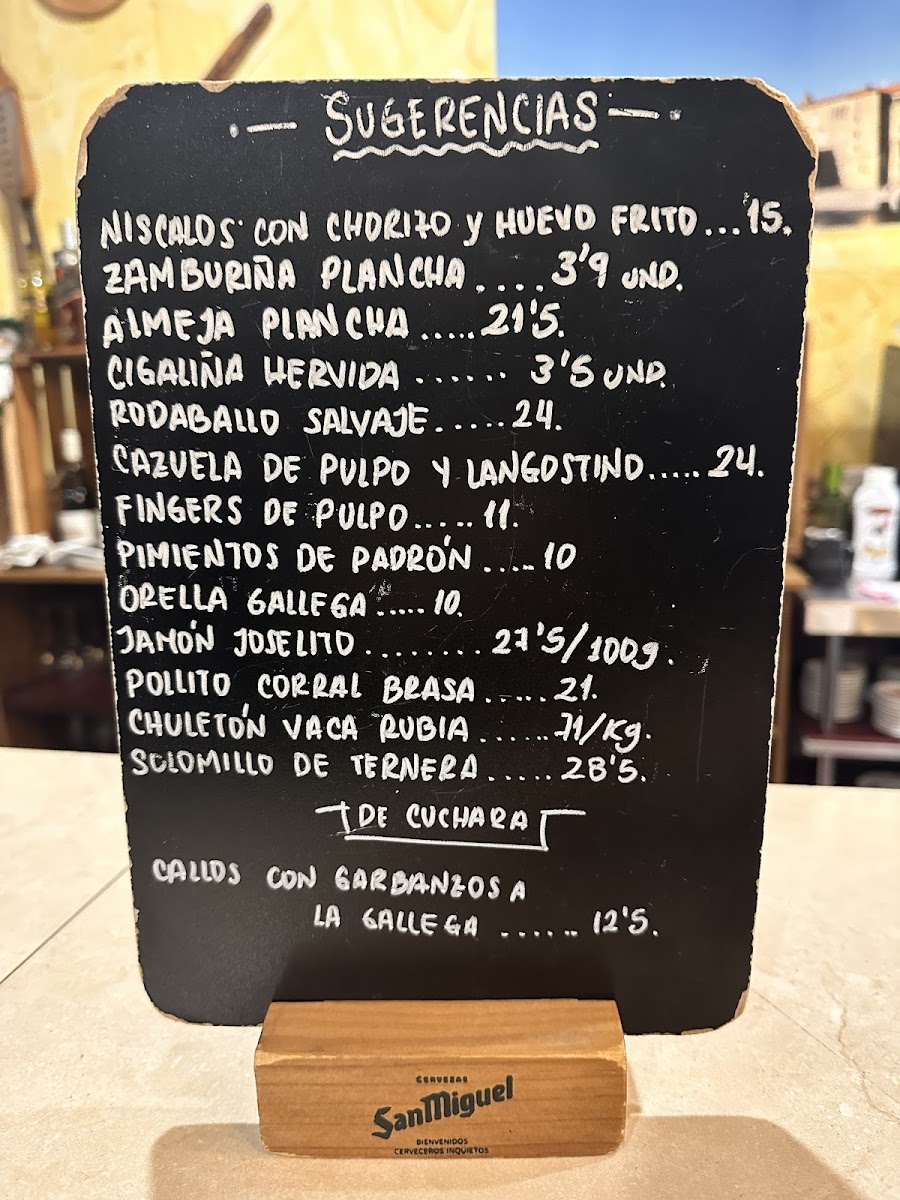 SUGERENCIAS
NISCALOS CON CHORIZO Y HUEVO FRITO...15.
ZAMBURIÑA PLANCHA....3'9 UND.
ALMEJA PLANCHA.....21'5.
CIGALIÑA HERVIDA...... 3'5 UND.
RODABALLO SALVAJE.....24.
CAZUELA DE PULPO Y LANGOSTINO.....24.
FINGERS DE PULPO..... 11.
PIMIENTOS DE PADRÓN.....10
ORELLA GALLEGA.....10.
JAMÓN JOSELITO........27'5/100g.
POLLITO CORRAL BRASA.....21.
CHULETÓN VACA RUBIA......71/Kg.
SOLOMILLO DE TERNERA.....28'5.
DE CUCHARA
CALLOS CON GARBANZOS A
LA GALLEGA ...... 12'5.
CERVEZAS
SanMiguel
BIENVENIDOS
CERVECEROS INQUIETOS